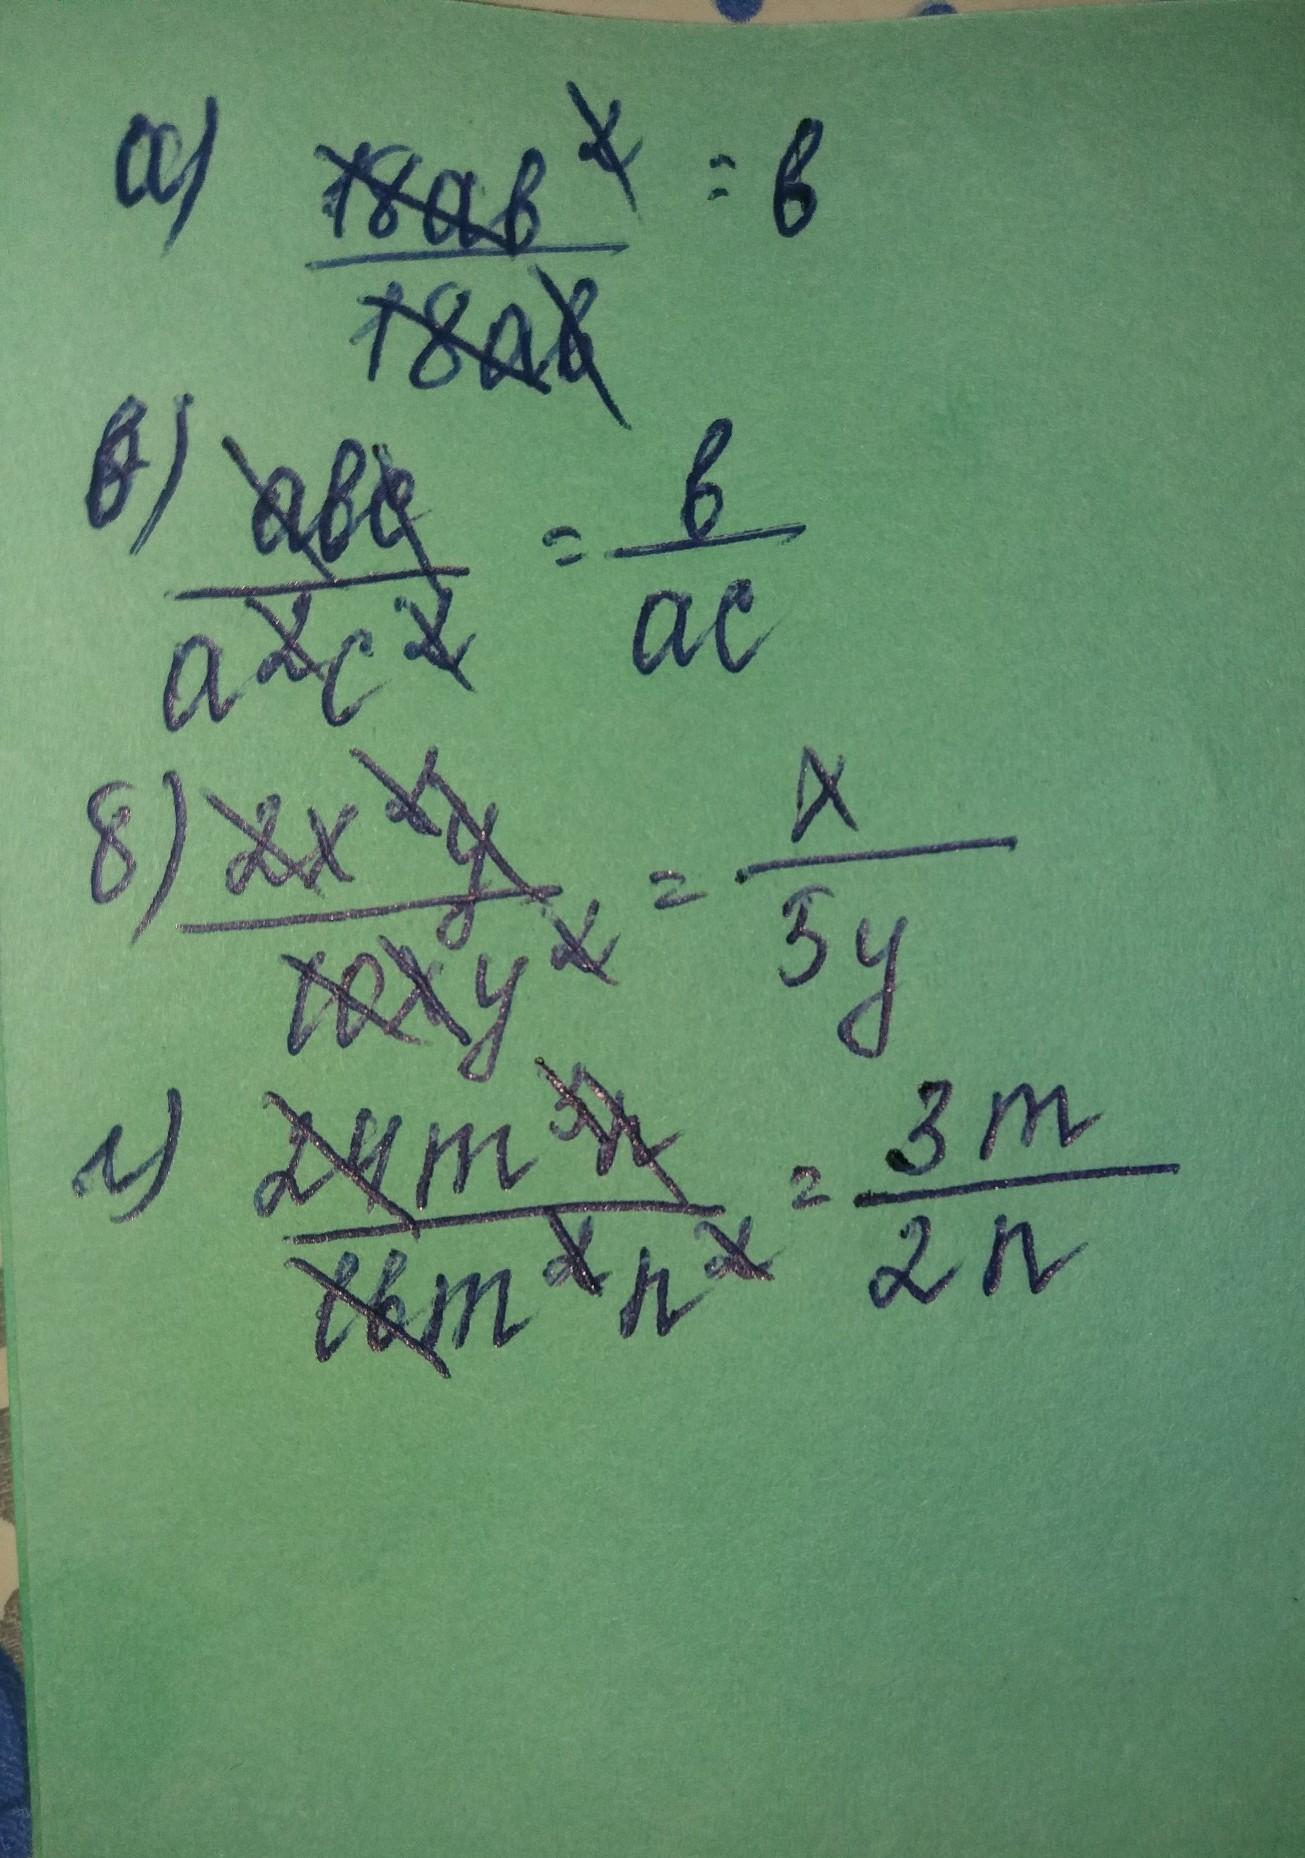 а) 18ab² / 18ab = b
б) abc / a²c² = b / ac
в) 2x²y / 10xy² = x / 5y
г) 24m³n / 16m²n² = 3m / 2n